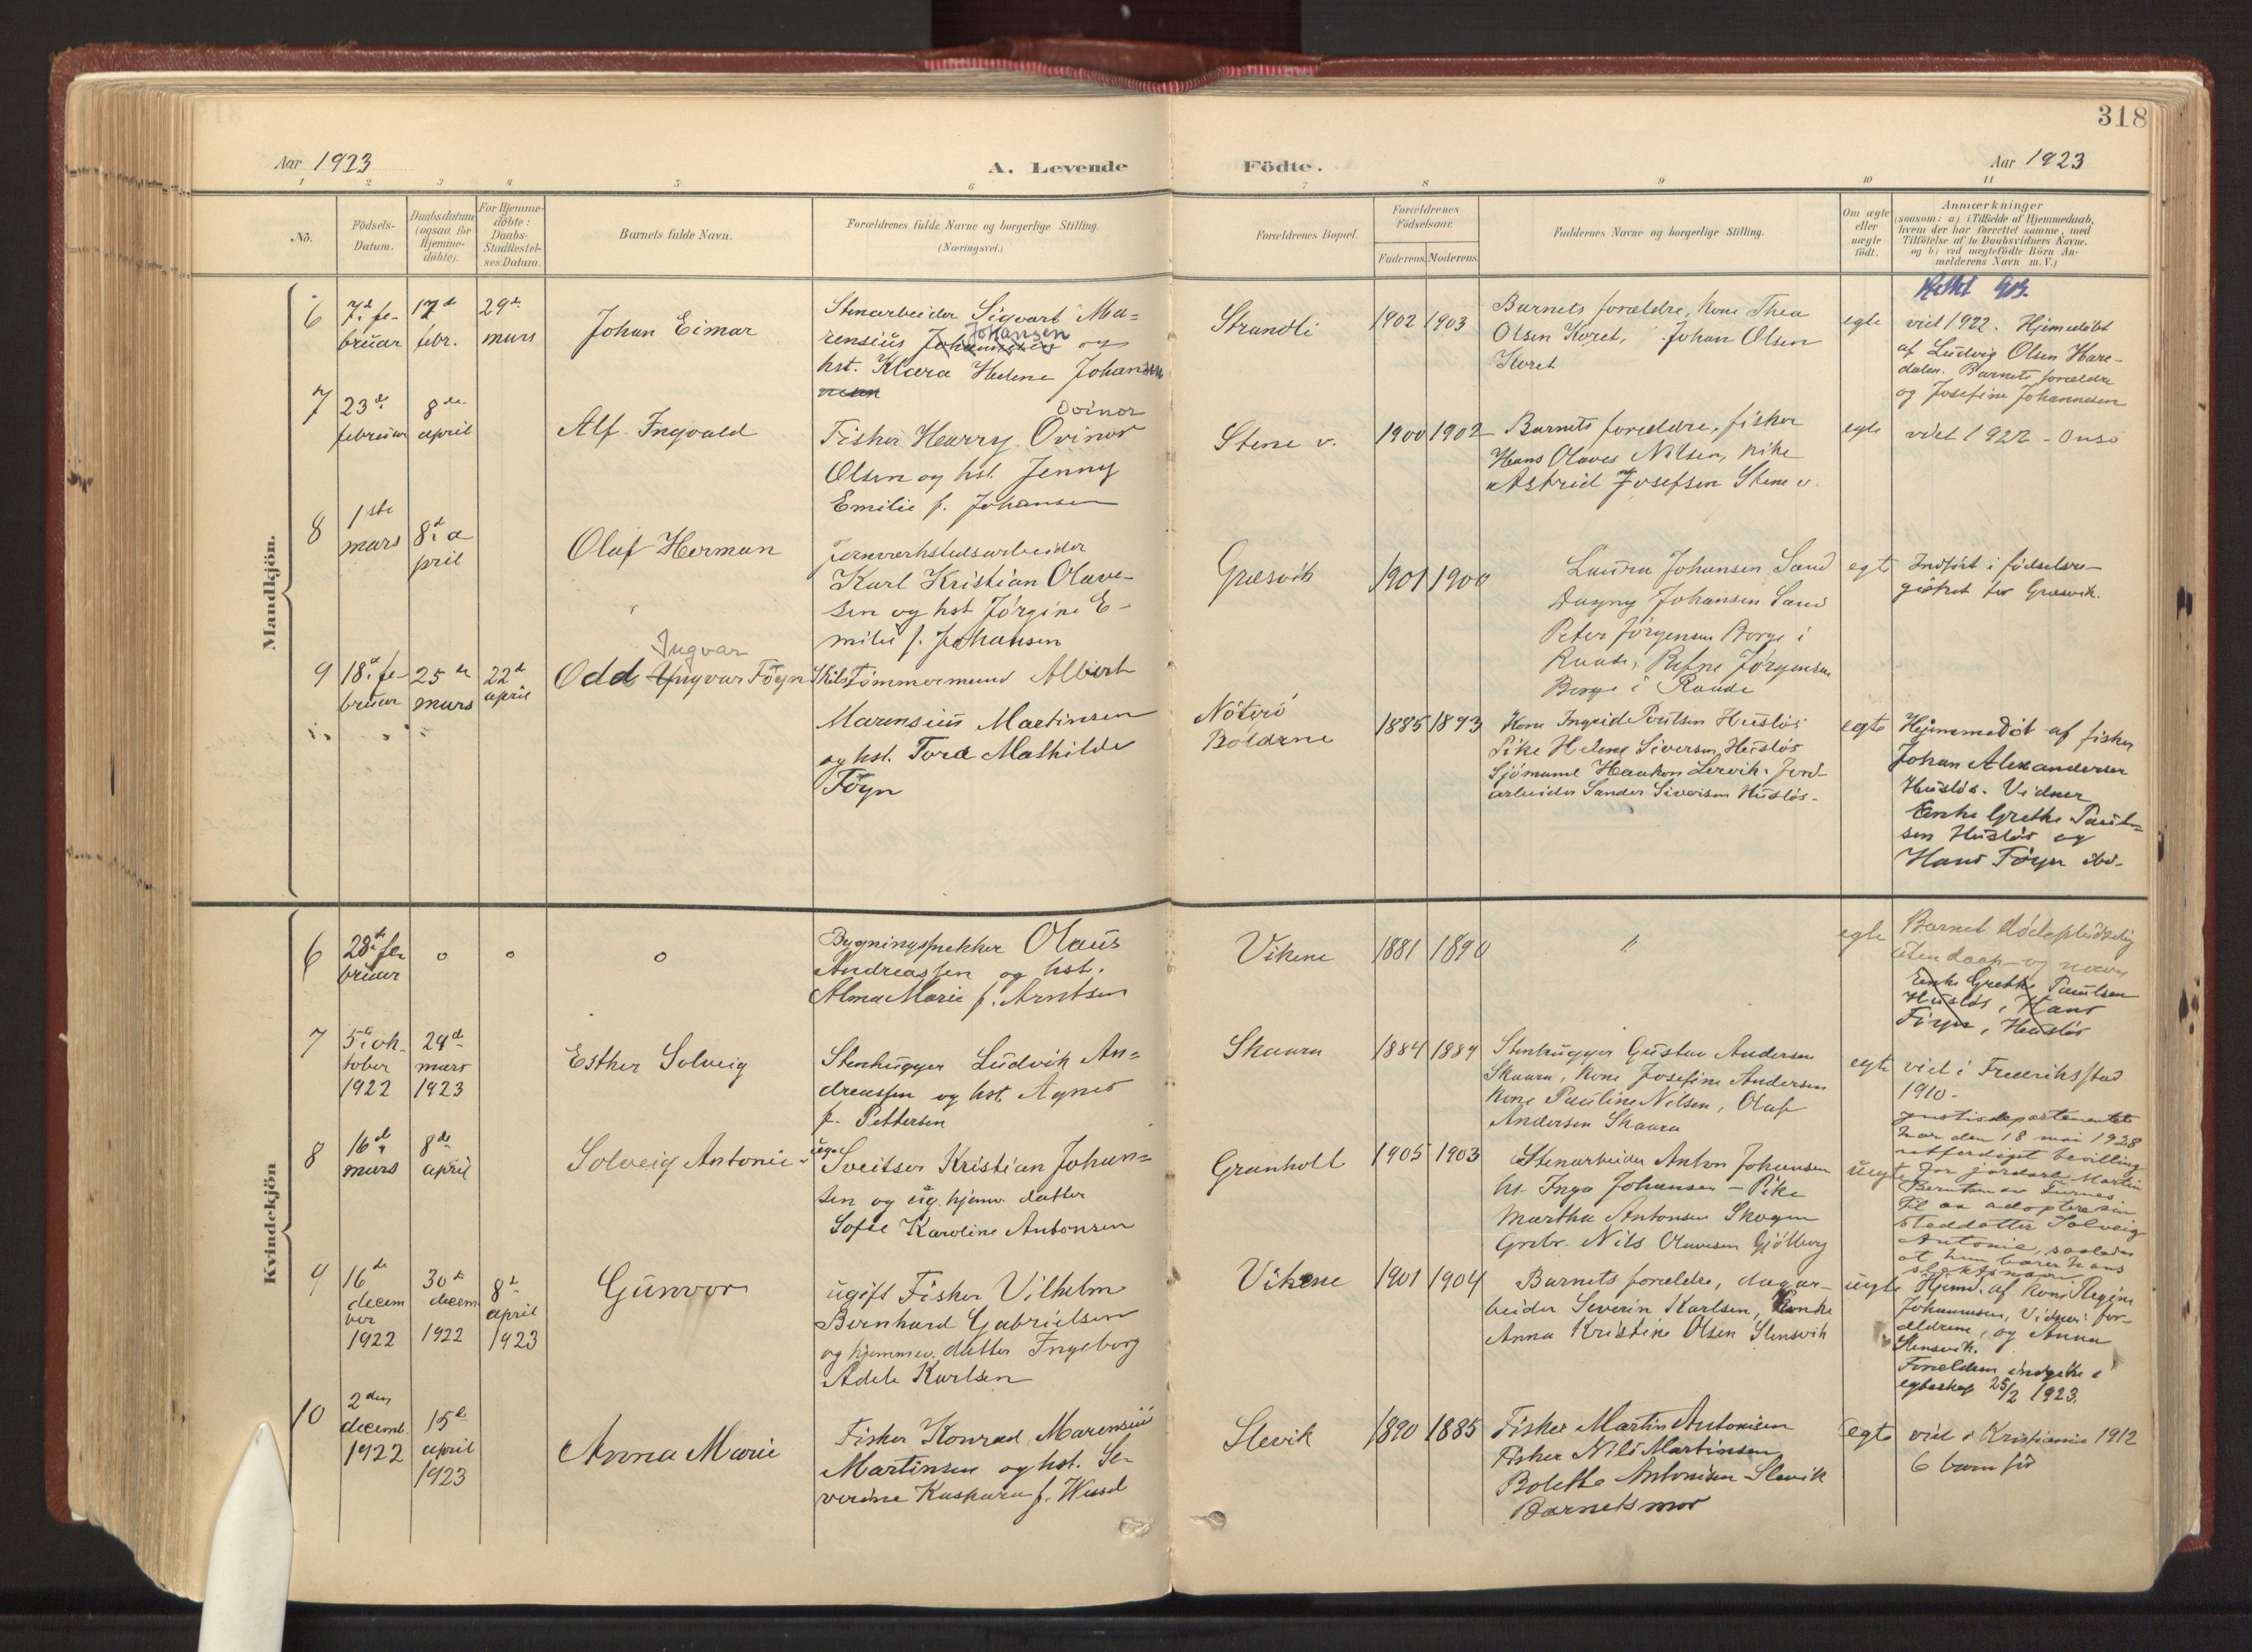 318
Aar 1923
A. Levende
Födte.
Aar 1923
1 2 3 4 5 6 7 8 9 10 11
No.
Födsels-
Datum.
Daabsdatum
(ogsaa for
Hjemme-
döbte).
For Hjemme-
döbte:
Daabs-
Stadfæstel-
ses Datum.
Barnets fulde Navn.
Forældrenes fulde Navne og borgerlige Stilling.
(Næringsvei.)
Forældrenes Bopæl.
Forældrenes
Födselsaar.
Faderens. Moderens.
Faddernes Navne og borgerlige Stilling.
Om ægte
eller
uægte
födt.
Anmærkninger
(saasom: a) i Tilfælde af Hjemmedaab,
hvem der har forrettet samme, med
Tilföielse af to Daabsvidners Navne.
og b) ved uægtefödte Börn An-
melderens Navn m.V.)
Mandkjön.
6
7de fe-
bruar
17de
febr.
29de
mars
Johan Eimar
Stenarbeider Sigvart Ma-
Johansen
rensius Johannesen og
hst. Klara Helene Johansen
Strandli
1902 1903
Barnets forældre, kone Thea
Olsen Koret, Johan Olsen
Koret
egte
Rettet
viet 1922. Hjemedöbt
af Ludvig Olsen Hare-
dalen. Barnets forældre
og Josefine Johannesen
7
23de
februar
8de
april
Alf Ingvald
Ovinor
Fisker Hearry Ovinor
Olsen og hst. Jenny
Emilie f. Johansen
Stene v.
1900 1902
Barnets forældre, fisker
Hans Olaves Nilsen, pike
Astrid Josefsen Stene v.
egte
viet 1922 - Onsö
8
1ste
mars
8de a
pril
Olaf Herman
jernverkstedsarbeider
Karl Kristian Olave-
sen og hst Jörgine E-
milie f. Johansen
Græsvik
1901 1900
Laura Johansen Sand
Dagny Johansen Sand
Peter Jörgensen Borge i
Raade, Refne Jörgensen
Borge i Raade
egte
Indfört i födselsre-
gistret for Græsvik.
9
18de fe-
bruar
25de
mars
22de
april
Ingvar
Odd Yngvar Föyn
Skibstömmermand Albert
Marensius Martinsen
og hst. Tora Mathilde
Föyn
Nöterö
Bolærne
1885 1893
Kone Ingrid Poulsen Huslös
Pike Helene Siversen, Huslös
Sjömand Haakon Lervik. Jord-
arbeider Sander Siversen Huslös.
egte
Hjemmedöbt af fisker
Johan Alexandersen
Huslös. Vidner
Enke Grethe Paul-
sen Huslös og
Hans Föyn ibd.
Kvindekjön
6
28de fe
bruar
o
o
o
Bygningssnekker Olaus
Andreassen og hst.
Alma Marie f. Arntsen
Vikene
1881 1890
"
egte
Barnet döde pludselig
uten daap og navn
Enke Grethe Paulsen
Huslös, Hans
Föyn, Huslös
7
5te ok-
tober
1922
29de
mars
1923
Esther Solveig
Stenhugger Ludvik An-
dreassen og hst. Agnes
f. Pettersen
Skaara
1884 1889
Stenhugger Gustav Andersen
Skaara, kone Josefine Andersen
kone Pauline Nilsen, Olaf
Andersen Skaara
egte
viet i Fredriksstad
1910.
8
16de
mars
8de
april
Solveig Antonie
ug.
Sveitser Kristian Johan-
sen og ug. hjemv. datter
Sofie Karoline Antonsen
Granholt
1905 1903
Stenarbeider Anton Johansen
hst. Inga Johansen - Pike
Martha Antonsen Skogen
Grdbr. Nils Olavesen Gjölberg
uegte
Justisdepartementet
har den 18 mai 1928
utferdiget bevilling
for jordarb. Martin
Berntsen av Furnes
til aa adoptere sin
steddatter Solveig
Antonie, saaledes
at hun bærer hans
slektsnavn
9
16de
decem
ber
1922
30de
decem
1922
8de
april
1923
Gunvor
ugift Fisker Vilhelm
Bernhard Gabrielsen
og hjemmev. datter Ingeborg
Adele Karlsen
Vikene
1901 1904
Barnets forældre, dagar-
beider Severin Karlsen, Enke
Anna Kristine Olsen Stensvik
uegte
Hjemd. af kone Regine
Johannesen, Vidner: for-
ældrene, og Anna
Stensvik.
Forældrene indgikk i
egteskap 25/2 1923.
10
2den
decemb.
1922
15de
april
1923
Anna Marie
Fisker Konrad Marensius
Martinsen og hst. Se-
verine Kaspara f. Wessel
Slevik
1890 1885
Fisker Martin Antonisen
Fisker Nils Martinsen
Bolette Antonisen Slevik
Barnets mor
egte
viet i Kristiania 1912
6 barn för